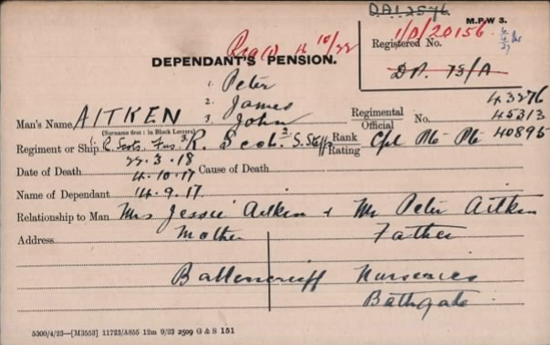 DA1.2576
M.P.W 3.
1/D/20156
Registered No.
DEPENDANT'S PENSION.
DP. 75/A
1. Peter
2. James
3. John
Man's Name AITKEN
(Surname first: in Block Letters)
Regimental
Official No.
43276
45313
40895
Regiment or Ship 1. R. Scots. Fus. 3. R. Scots. 2. S. Staffs
Rank
Rating
Cpl Pte Pte
22.3.18
Date of Death 4.10.17 Cause of Death
Name of Dependant 14.9.17
Relationship to Man Mrs Jessie Aitken & Mr Peter Aitken
Address Mother Father
Ballencrieff Nurseries
Bathgate
5300/4/23—[M3553] 11723/A855 12m 9/23 2509 G & S 151